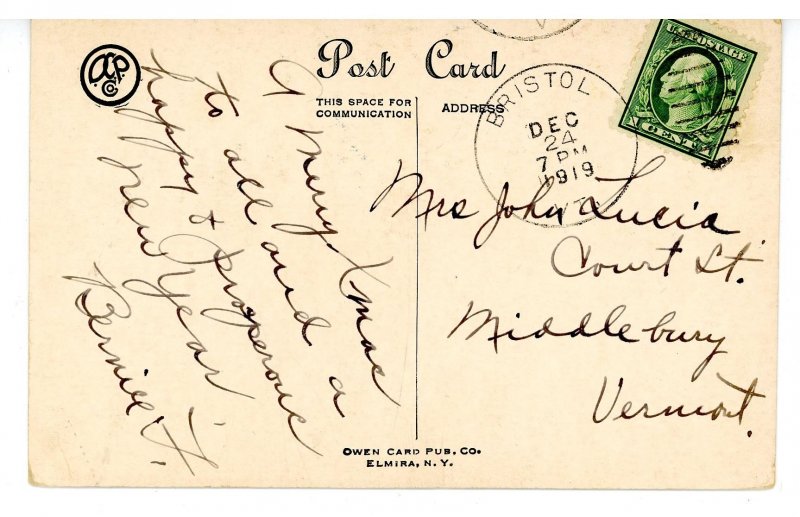 Post Card
THIS SPACE FOR
COMMUNICATION
ADDRESS
BRISTOL
DEC
24
7 PM
1919
VT
U.S. POSTAGE
1 CENT 1
A Merry Xmas
to all and a
happy & Prosperous
New Year
Bernice F.
Mrs John Lucia
Court St.
Middlebury
Vermont.
OWEN CARD PUB. CO.
ELMIRA, N. Y.